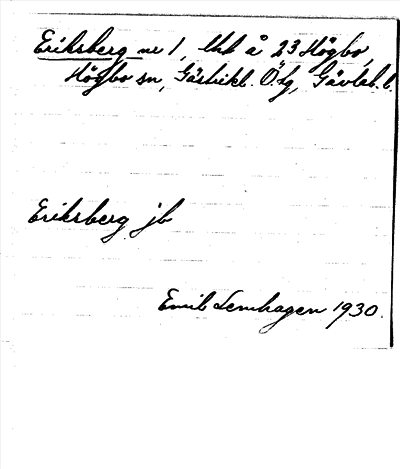 Eriksberg nr 1, lht å 23 Högbo,
Högbo sn, Gästrikl. Ö. tg, Gävleb. l.
Eriksberg jb
Emil Lenhagen 1930.